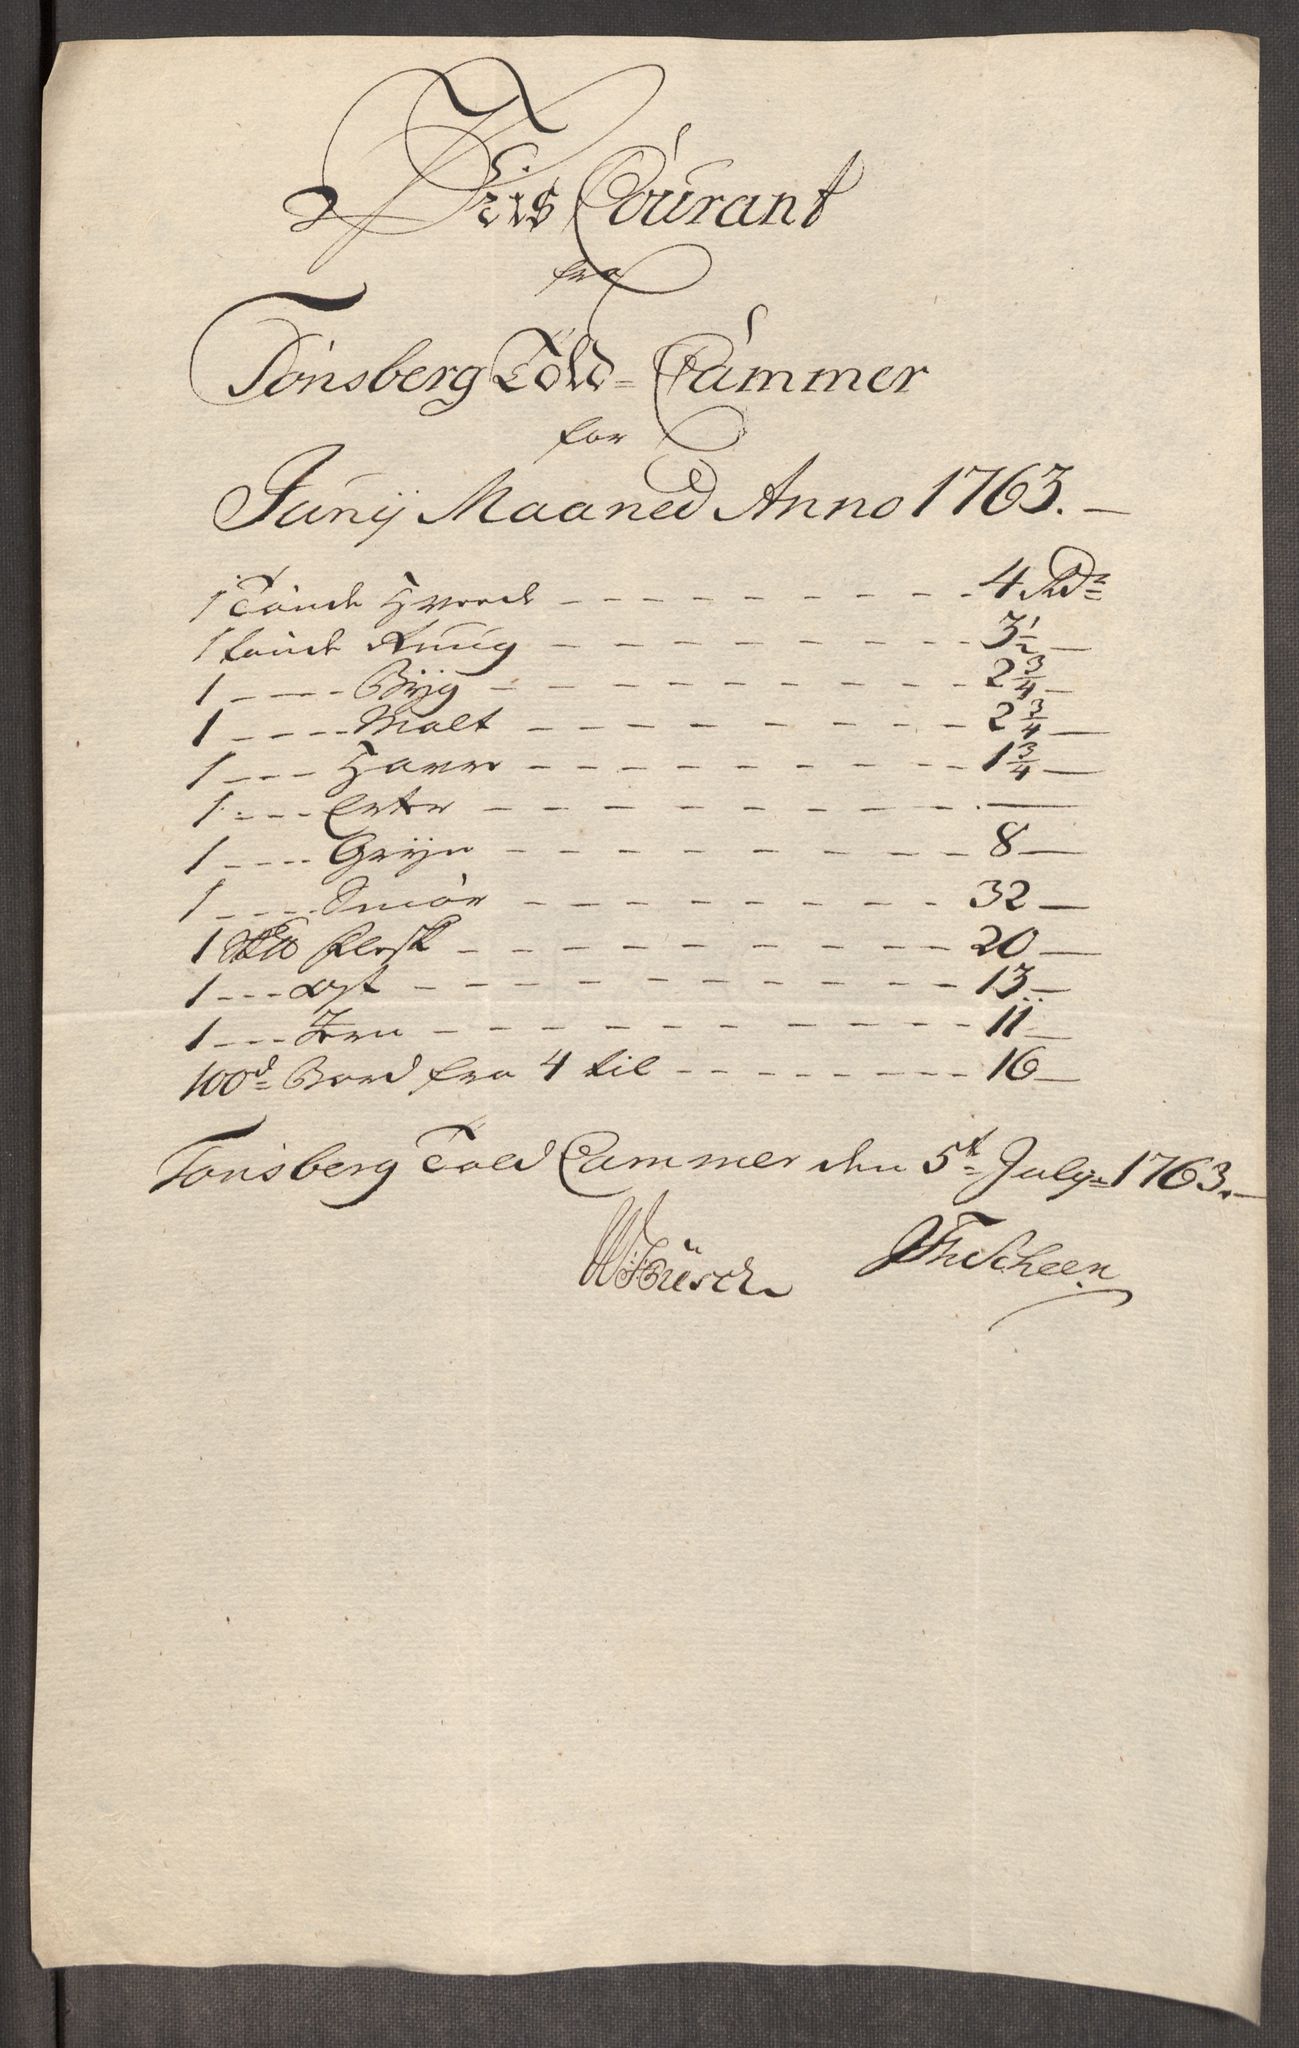 Priis Courant
fra
Tönsberg Told=Cammer
for
Junij Maaned Anno 1763.—
1 Tönde Hvede - - - - - - - - 4 Rdr
1 tönde Rüug - - - - - - - - 3 1/2 —
1 - - - - Byg - - - - - - - - 2 3/4 —
1 - - - - Malt - - - - - - - - 2 3/4 —
1 - - - - Havre - - - - - - - - 1 3/4 —
1 - - - - Erter - - - - - - - - —
1 - - - - Gryn - - - - - - - - 8 —
1 - - - - Smör - - - - - - - - 32 —
1 Flesk - - - - - - - - 20 —
1 - - - - - - - - - - - 13 —
1 - - - - - - - - - - - 11 —
100d Bord fra 4 til - - - - - - - - 16 —
Tonsberg Told Cammer den 5t July 1763.—
Büsch JFhScheen